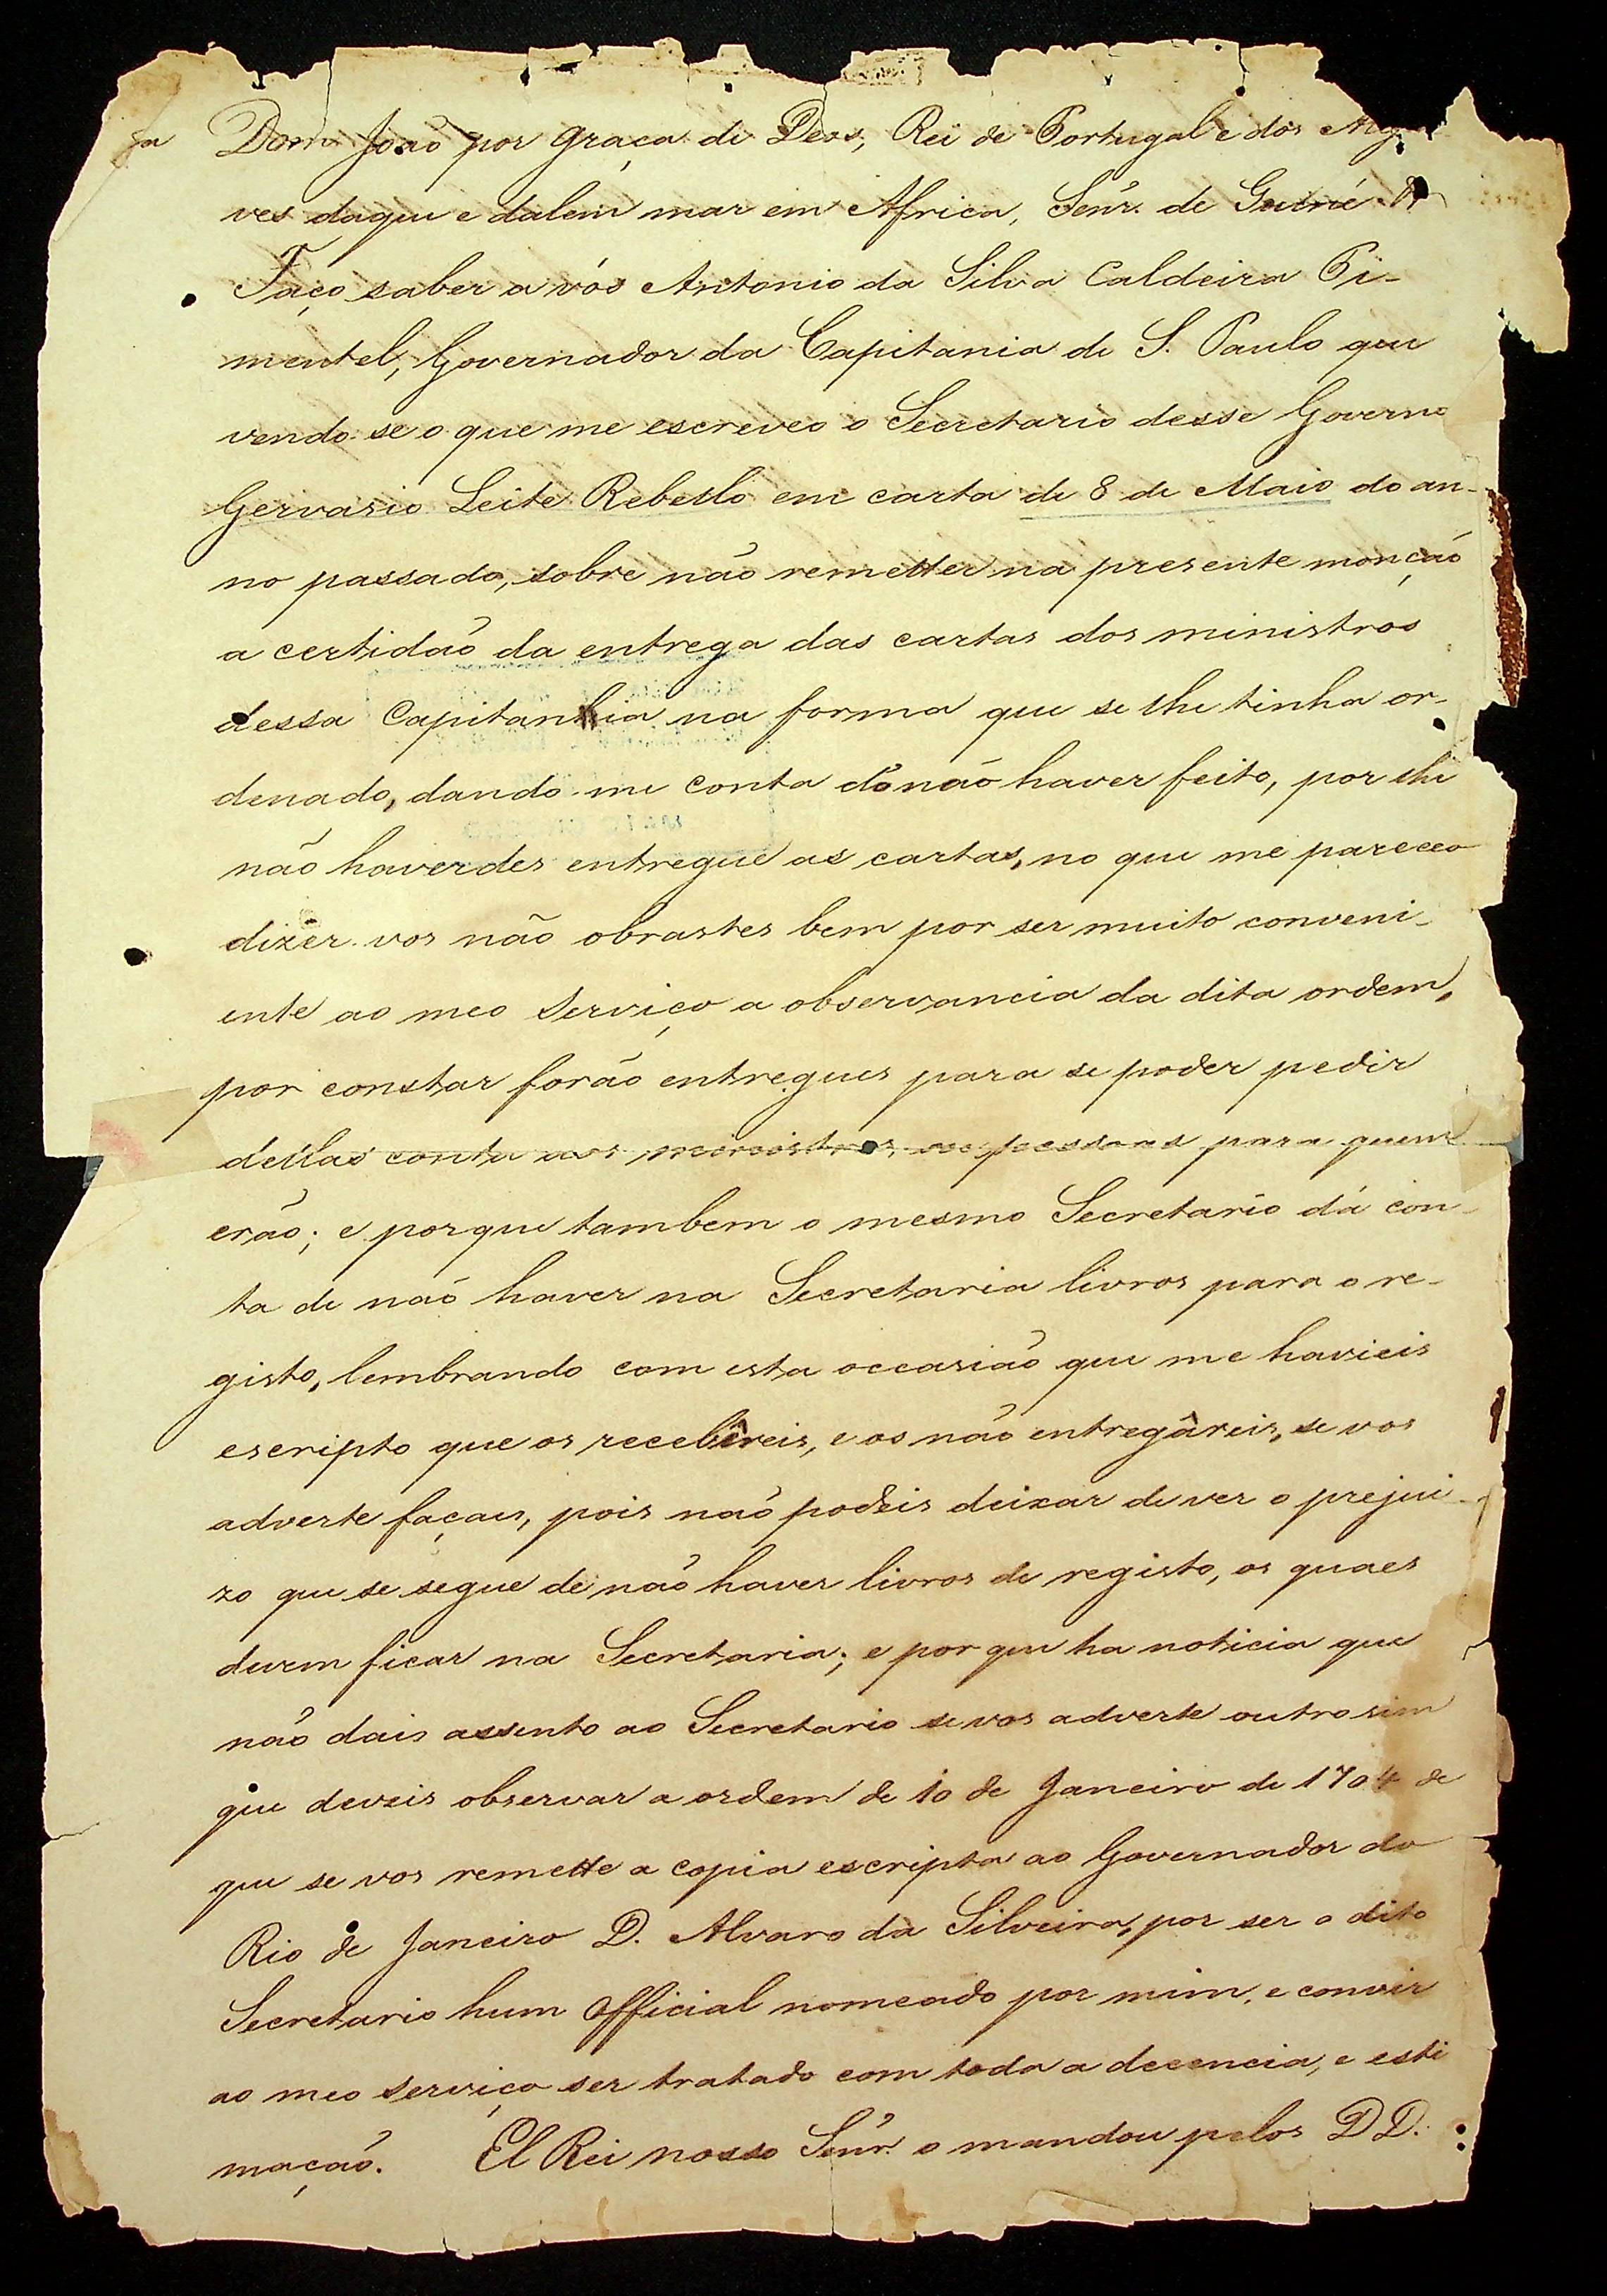 Dom João por graça de Deos, Rei de Portugal e dos Algar
ves daquem e dalem mar em Africa, Senr. de Guiné &
Faço saber a vós Antonio da Silva Caldeira Pi-
mentel, Governador da Capitania de S. Paulo que
vendo-se o que me escreveo o Secretario desse Governo
Gervasio Leite Rebello em carta de 8 de Maio do an-
no passado, sobre não remetter na presente monção
a certidão da entrega das cartas dos ministros
dessa Capitania na forma que se lhe tinha or-
denado, dando-me conta do não haver feito, por lhe
não haverdes entregue as cartas, no que me pareceo
dizer-vos não obrastes bem por ser muito conveni-
ente ao meo serviço a observancia da dita ordem,
por constar forão entregues para se poder pedir
dellas conta aos ministros, ou pessoas para quem
erão; e porque tambem o mesmo Secretario dá con-
ta de não haver na Secretaria livros para o re-
gisto, lembrando com esta occasião que me havieis
escripto que os recebêreis, e os não entregâreis, se vos
adverte façaes, pois não podeis deixar de ver o prejui-
zo que se segue de não haver livros de registo, os quaes
devem ficar na Secretaria; e por que ha noticia que
não dais assento ao Secretario se vos adverte outro sim
que deveis observar a ordem de 10 de Janeiro de 1704 de
que se vos remette a copia escripta ao Governador do
Rio de Janeiro D. Alvaro da Silveira, por ser o dito
Secretario hum Official nomeado por mim, e convir
ao meo serviço ser tratado com toda a decencia, e esti
mação. El Rei nosso Senr. o mandou pelos DD.